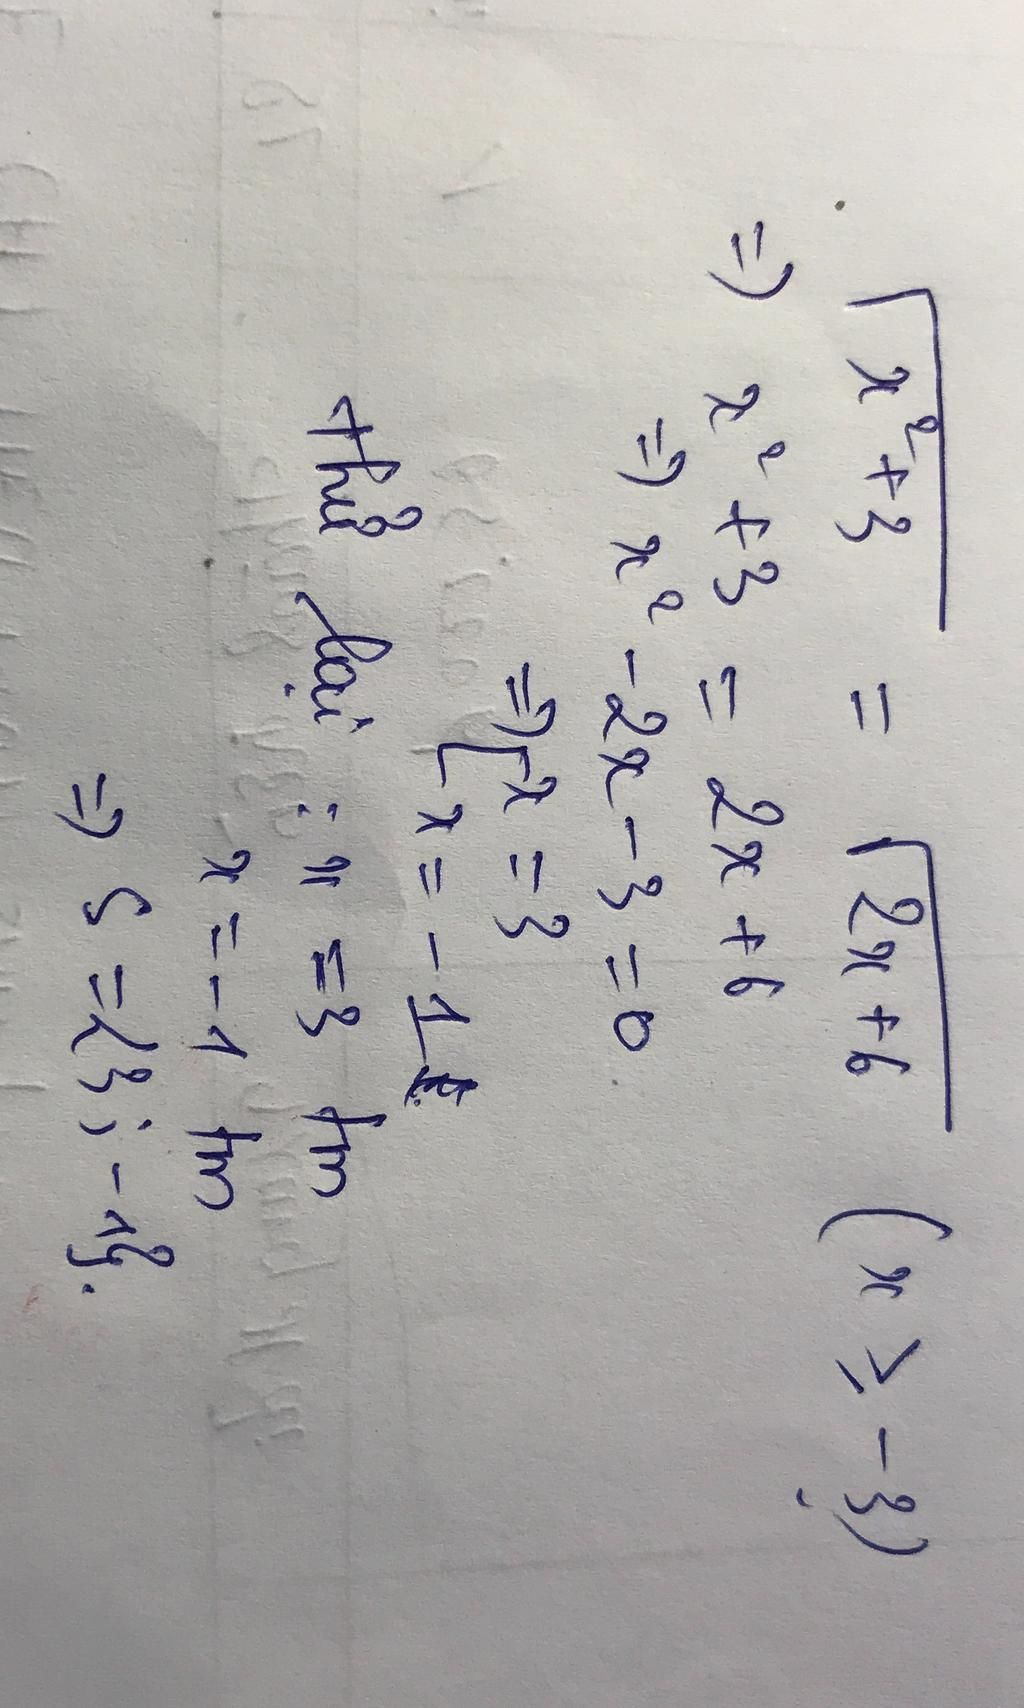 √(x² + 3) = √(2x + 6) (x ≥ -3)
=> x² + 3 = 2x + 6
=> x² - 2x - 3 = 0
=> [ x = 3
[ x = -1
thử lại : x = 3 tm
x = -1 tm
=> S = {3; -1}.